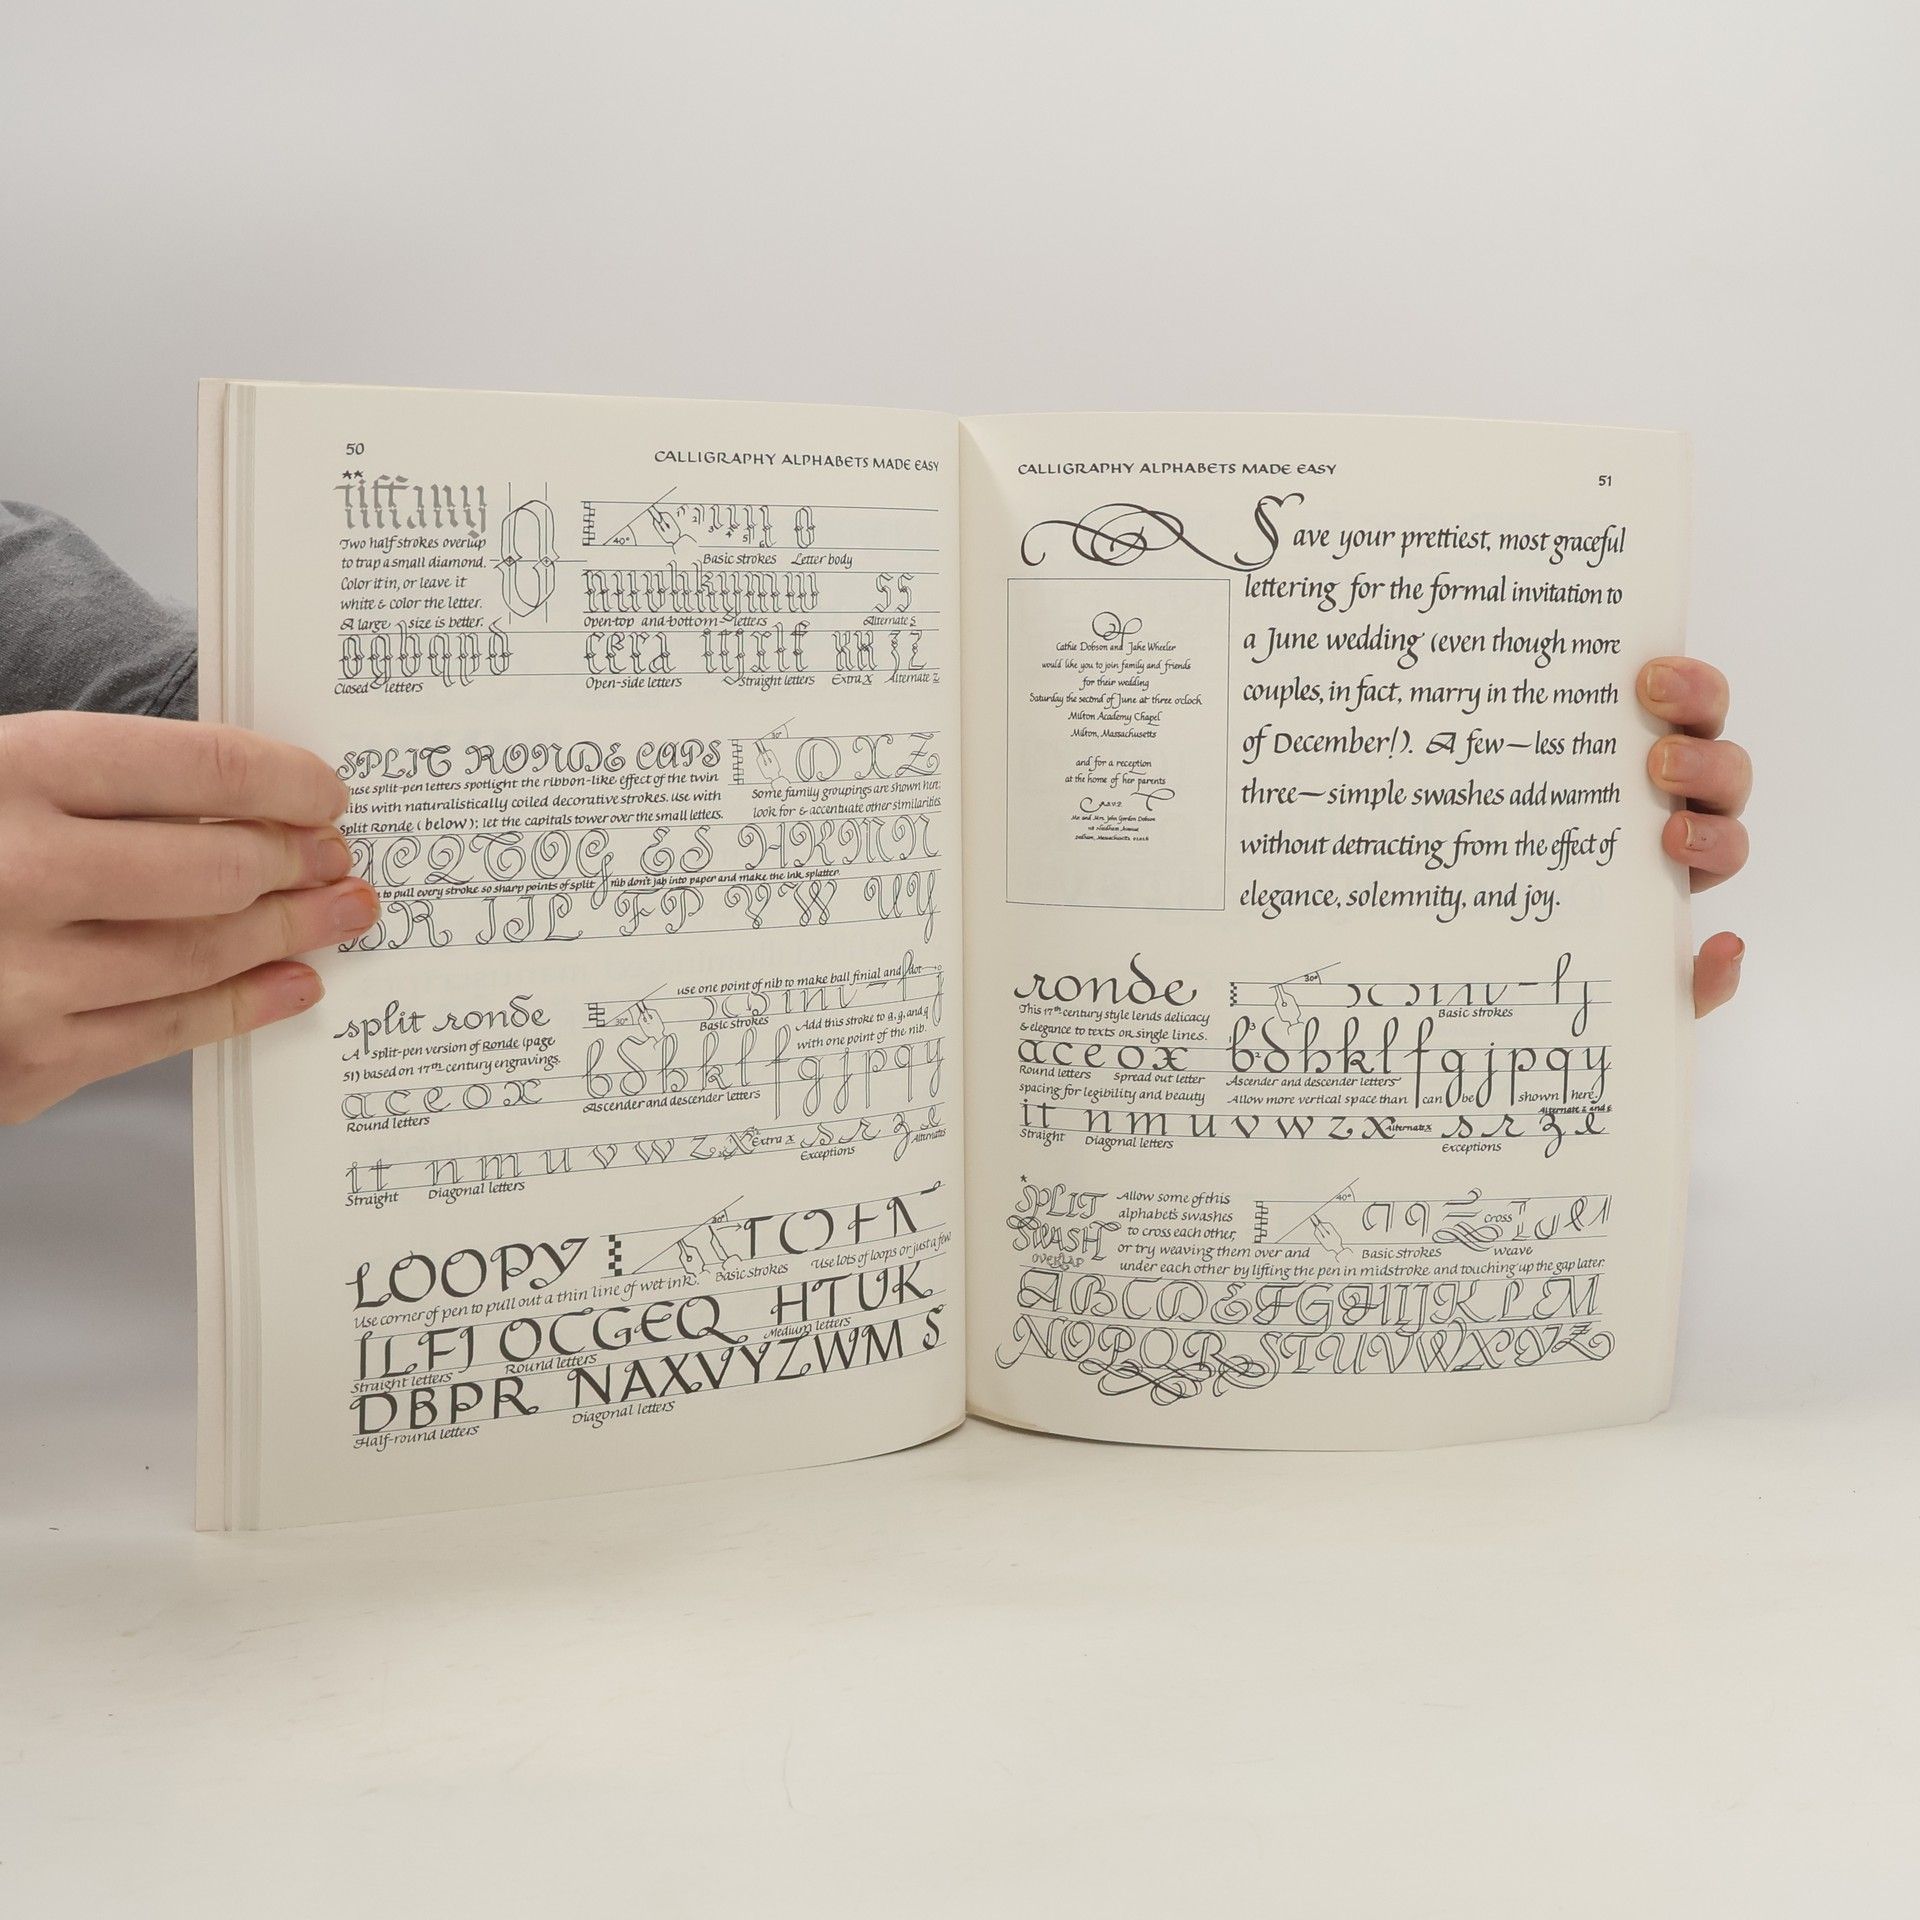 50
CALLIGRAPHY ALPHABETS MADE EASY
**
tiffany
Two half strokes overlap
to trap a small diamond.
Color it in, or leave it
white & color the letter.
A large size is better.
40°
Basic strokes Letter body
nuvhkymw ss
Open-top and-bottom letters Alternate s
Closed letters
Open-side letters Straight letters Extra x Alternate z
SPLIT RONDE CAPS
These split-pen letters spotlight the ribbon-like effect of the twin
nibs with naturalistically coiled decorative strokes. Use with
Split Ronde (below); let the capitals tower over the small letters.
30°
O X Z
Some family groupings are shown here;
look for & accentuate other similarities.
ACQTOG ES HKMN
to pull every stroke so sharp points of split nib don't jab into paper and make the ink splatter.
BR IJL FP VW UY
split ronde
A split-pen version of Ronde (page
51) based on 17th century engravings.
use one point of nib to make ball finial and dot
30°
Basic strokes
Add this stroke to g, y, and q
with one point of the nib.
b d h k l f g j p q y
Ascender and descender letters
a c e o x
Round letters
i t n m u v w z x Extra x s r z e
Straight Diagonal letters Exceptions Alternates
LOOPY
20°
T O F A
Use corner of pen to pull out a thin line of wet ink. Basic strokes Use lots of loops or just a few
ILFJ OCGEQ HTUK
Straight letters Round letters Medium letters
DBPR NAXVYZWM S
Half-round letters Diagonal letters
CALLIGRAPHY ALPHABETS MADE EASY
51
Save your prettiest, most graceful
lettering for the formal invitation to
a June wedding (even though more
couples, in fact, marry in the month
of December!). A few—less than
three—simple swashes add warmth
without detracting from the effect of
elegance, solemnity, and joy.
Cathie Dobson and Jake Wheeler
would like you to join family and friends
for their wedding
Saturday the second of June at three o'clock
Milton Academy Chapel
Milton, Massachusetts
and for a reception
at the home of her parents
Mr. and Mrs. John Gordon Dobson
Dedham, Massachusetts
ronde
This 17th century style lends delicacy
& elegance to texts or single lines.
30°
Basic strokes
a c e o x b d h k l f g j p q y
Round letters Spread out letter Ascender and descender letters
spacing for legibility and beauty Allow more vertical space than can be shown here
i t n m u v w z x Alternate x s r z e Alternate z and e
Straight Diagonal letters Exceptions
*
SPLIT
SWASH
OVERLAP
Allow some of this
alphabet's swashes
to cross each other,
or try weaving them over and
under each other by lifting the pen in midstroke and touching up the gap later.
40°
Basic strokes cross weave
ABCDEFGHIJKLM
NOPQRSTUVWXYZ